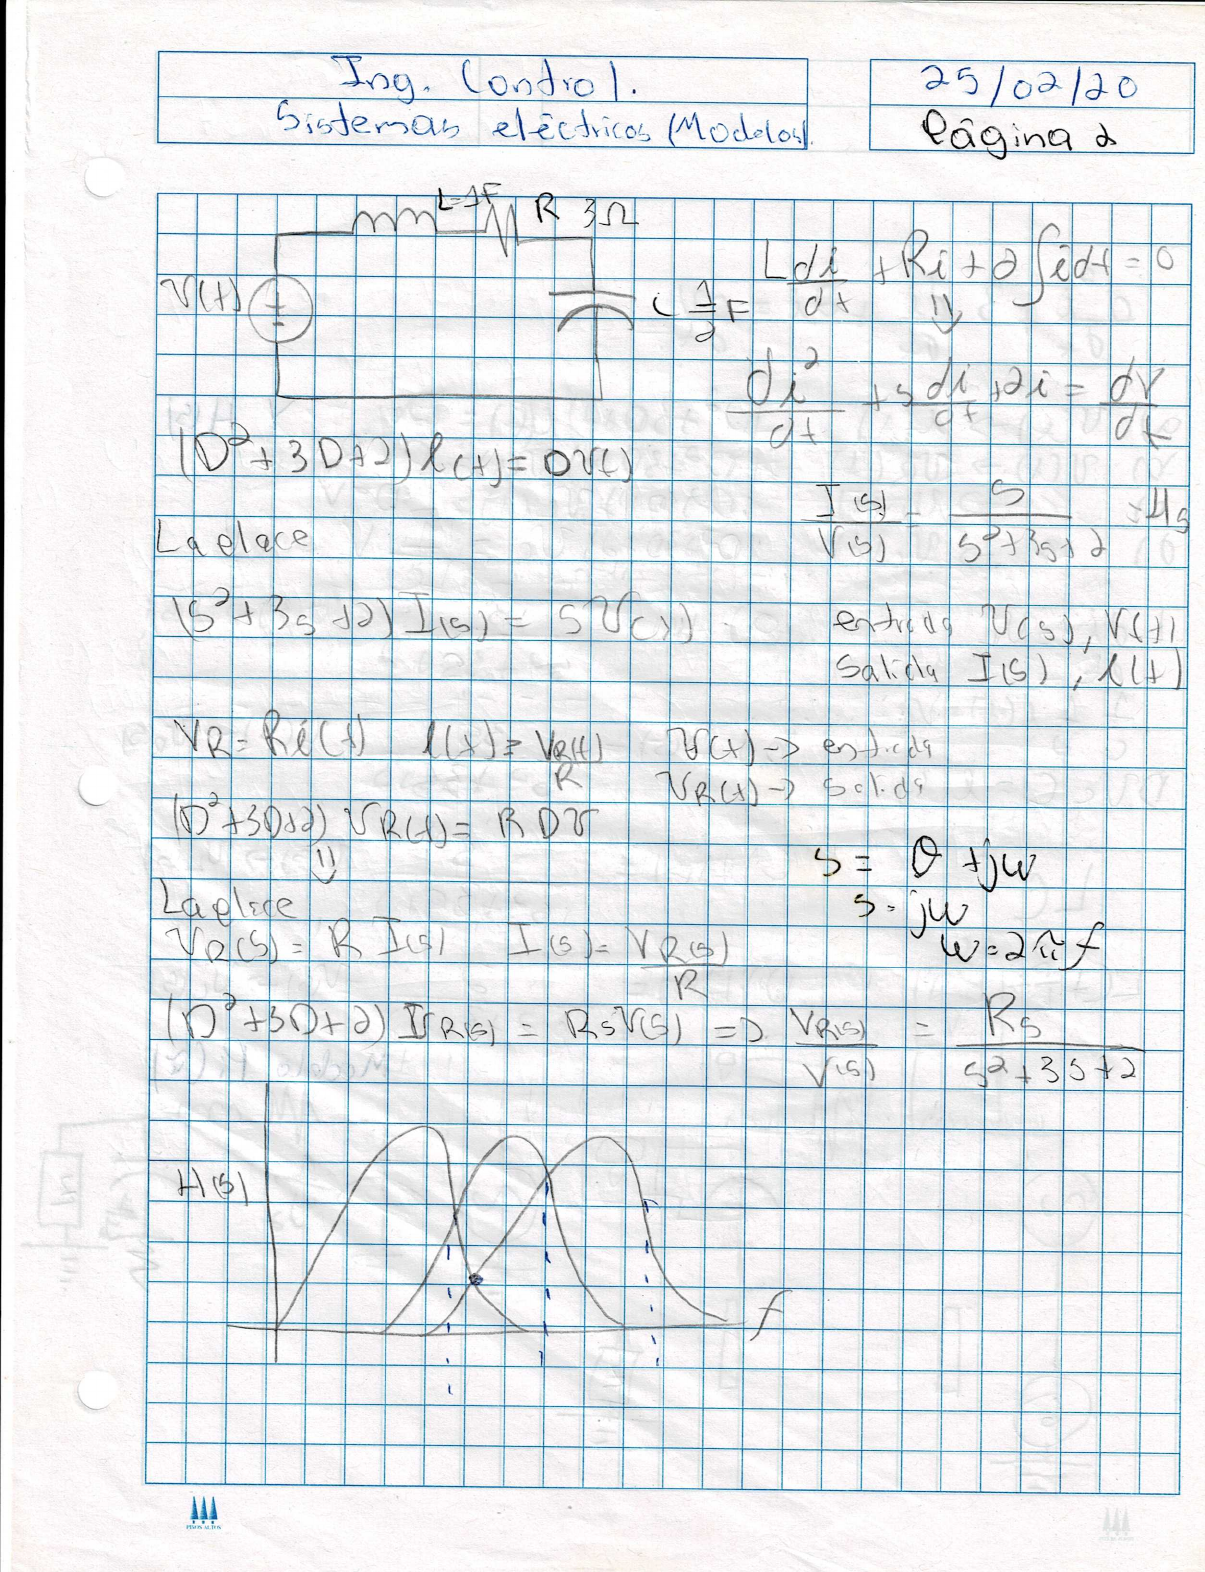 Ing. Control.
Sistemas eléctricos (Modelos).
25/02/20
Página 2
L=1F R 3Ω
V(t)
C 1/2 F
L di/dt + Ri + 2 ∫idt = 0
⇓
di²/dt + 3 di/dt + 2i = dV/dt
(D²+3D+2) i(t) = DV()
I(s)/V(s) = s/(s²+3s+2) = Hs
Laplace
(s²+3s+2) I(s) = sV(s)
entrada V(s), V(t)
Salida I(s), i(t)
VR = Ri(t) i(t) = VR(t)/R V(t) -> entrada
VR(t) -> salida
(D²+3D+2) VR(t) = R DV
⇓
s = θ + jw
Laplace
s = jw
VR(s) = R I(s) I(s) = VR(s)/R
w = 2πf
(D²+3D+2) VR(s) = RsV(s) => VR(s)/V(s) = Rs/(s²+3s+2)
H(s)
f
PINOS ALTOS